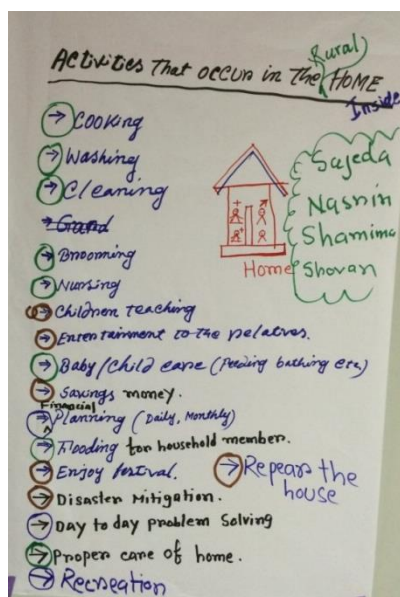 Rural
Activities That occur in the HOME
Inside
→ Cooking
→ Washing
→ Cleaning
→ Brooming
→ Nursing
→ Children teaching
→ Entertainment to the relatives.
→ Baby/child care (Feeding bathing etc.)
→ Savings money.
Financial
→ Planning (Daily, Monthly)
→ Fooding for household member.
→ Enjoy festival.
→ Repears the
house
→ Disaster Mitigation.
→ Day to day problem Solving
→ Proper care of home.
→ Recreation
Home
Sajeda
Nasrin
Shamima
Shovan